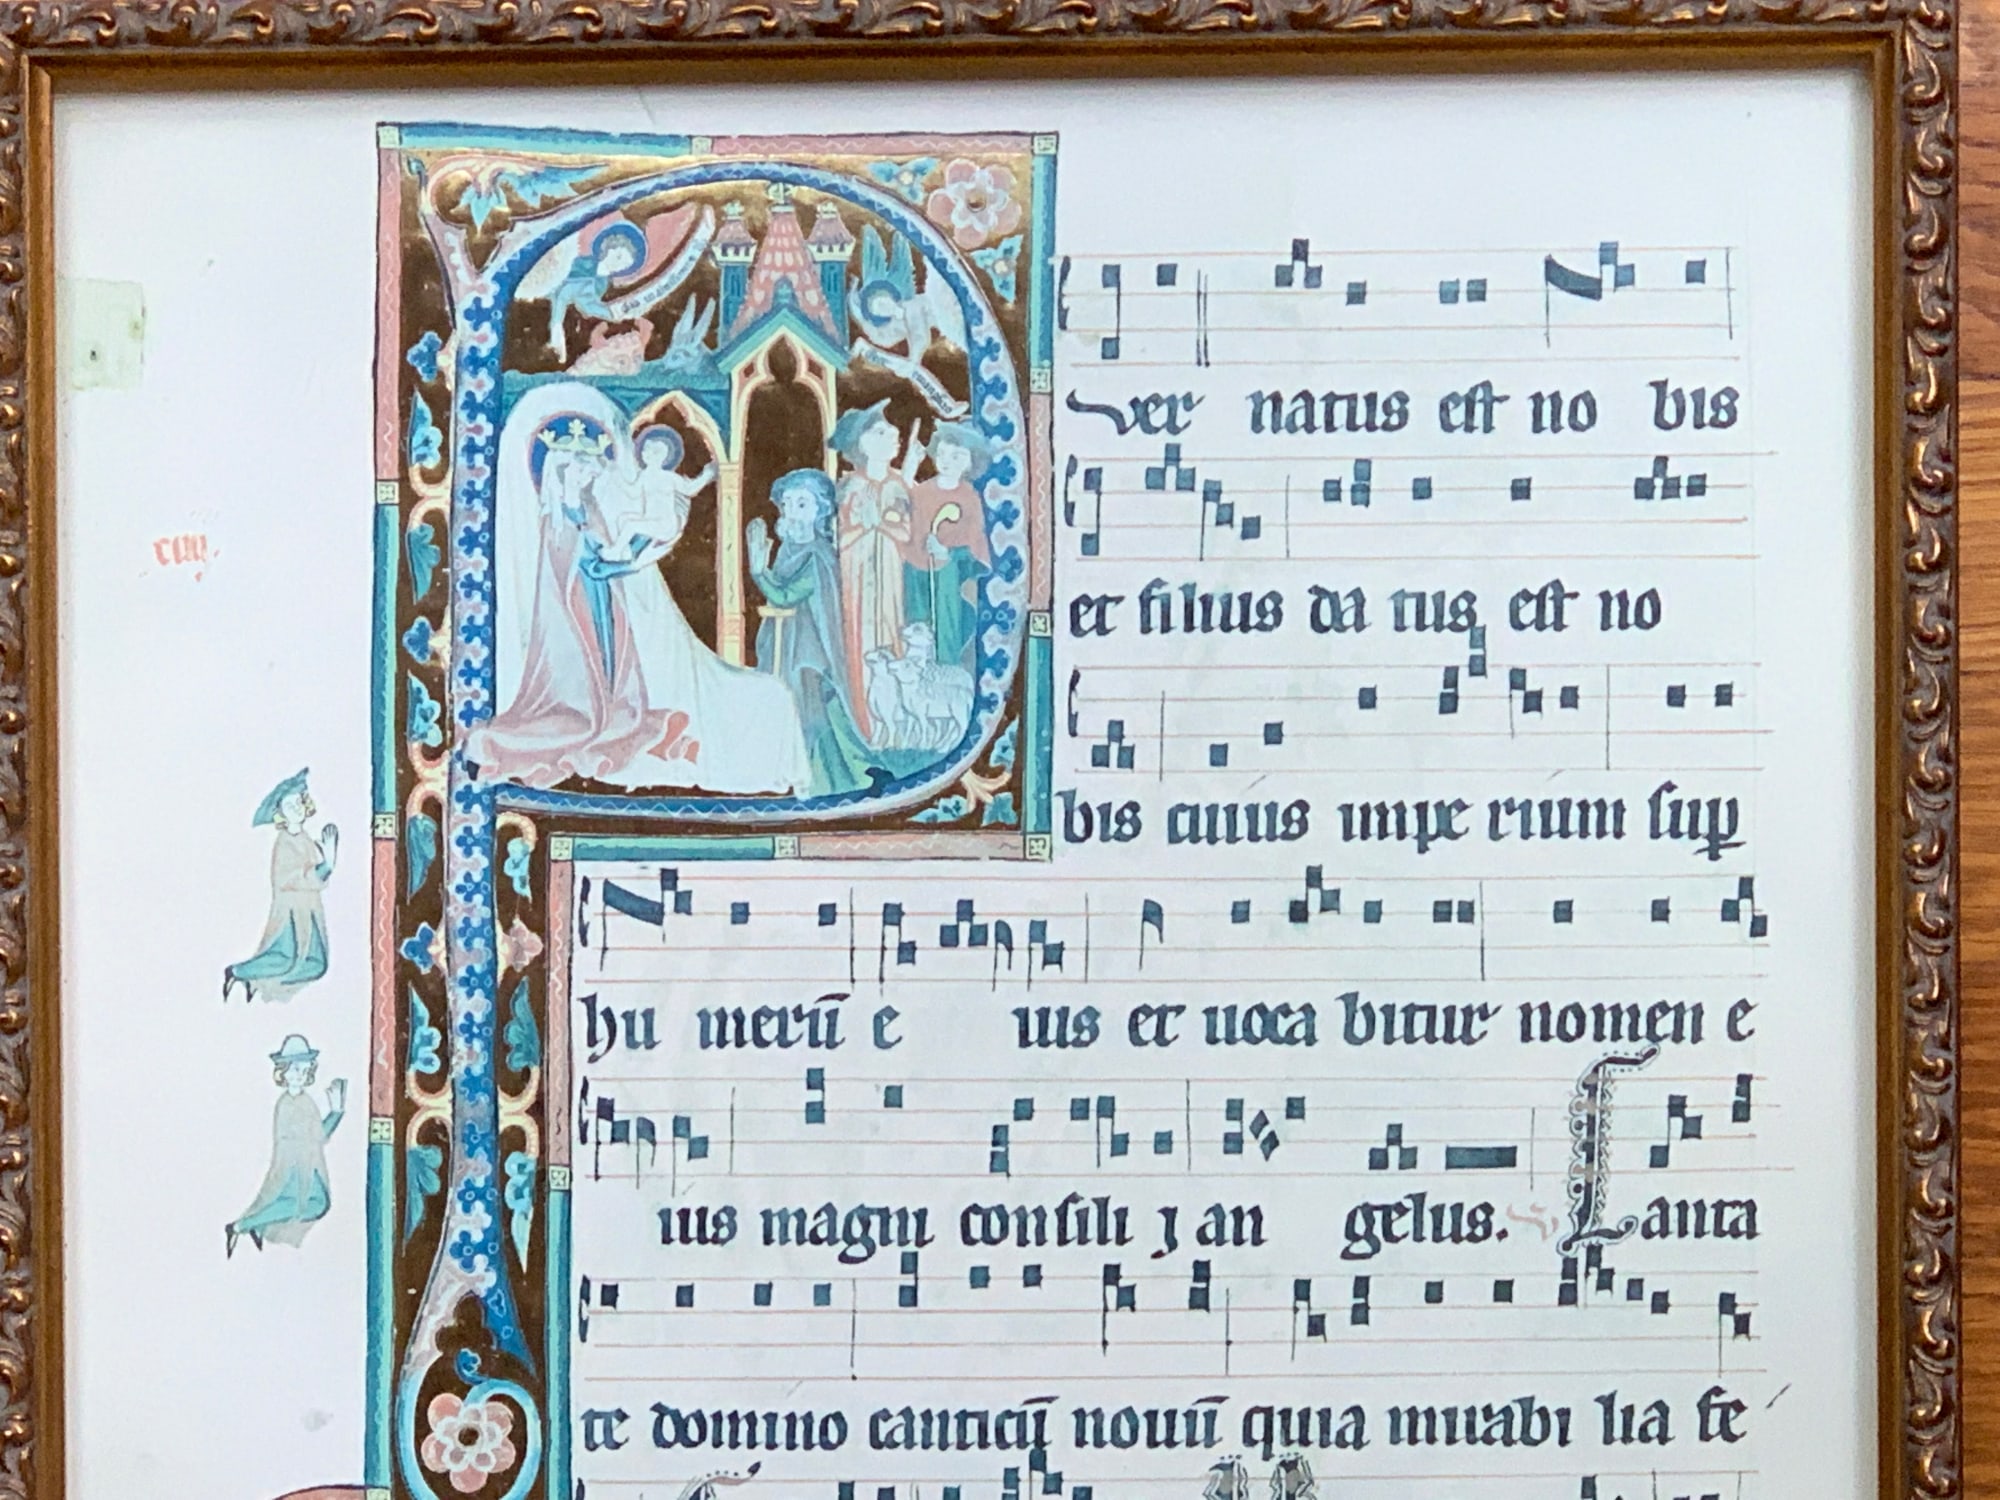 P
uer natus est no bis
et filius da tus est no
bis cuius impe rium sup
hu merū e ius et uoca bitur nomen e
ius magni consili j an gelus. Canta
te domino canticū nouū quia mirabi lia fe